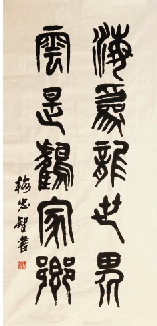 海為龍世界
雲是鶴家鄉
梅忠智書